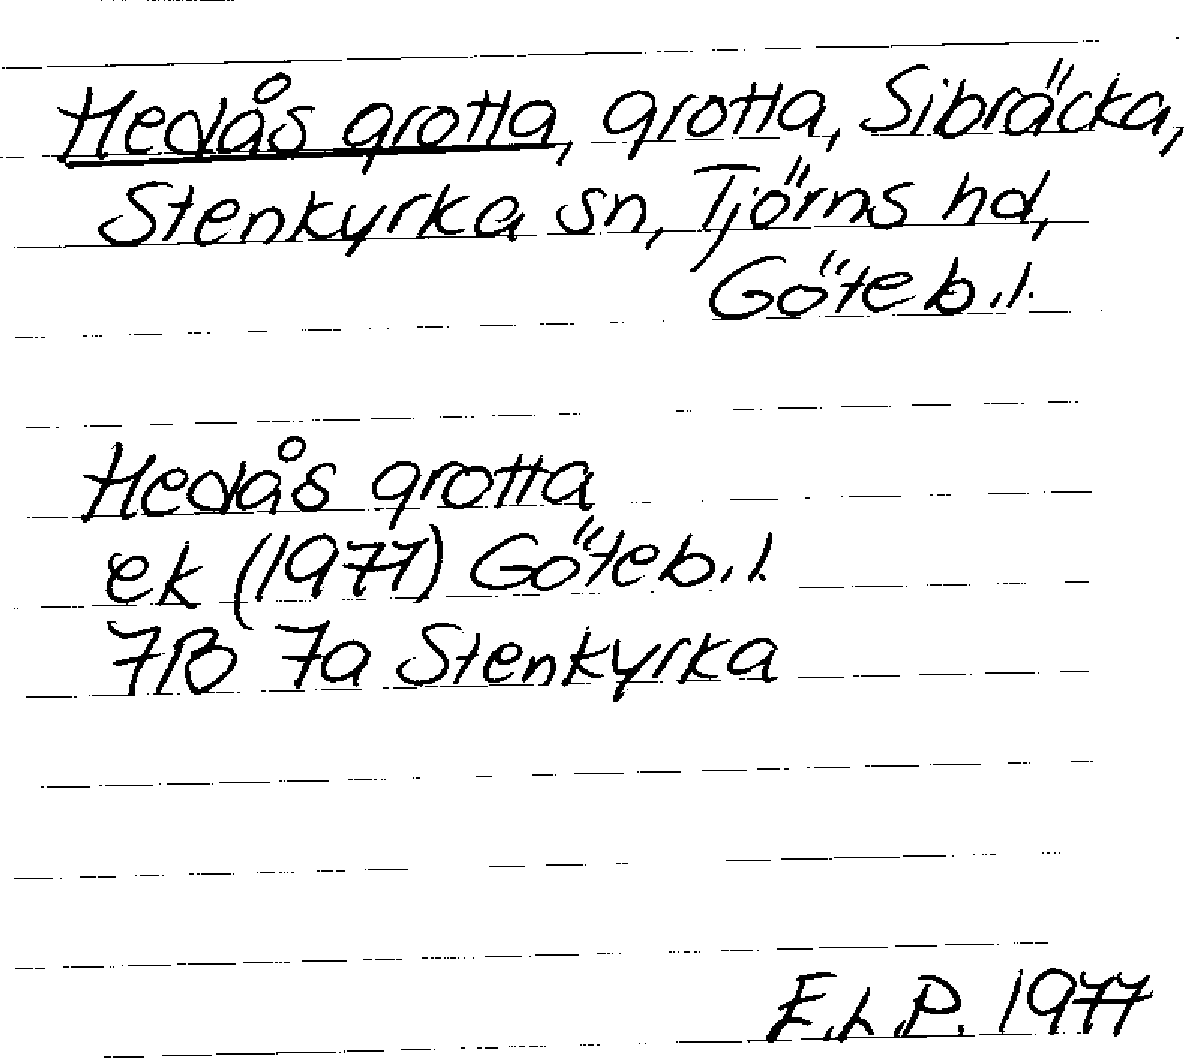 Hedås grotta, grotta, Sibräcka,
Stenkyrka sn, Tjörns hd,
Göteb.l.
Hedås grotta
ek (1977) Göteb.l.
7B 7a Stenkyrka
E.L.P. 1977